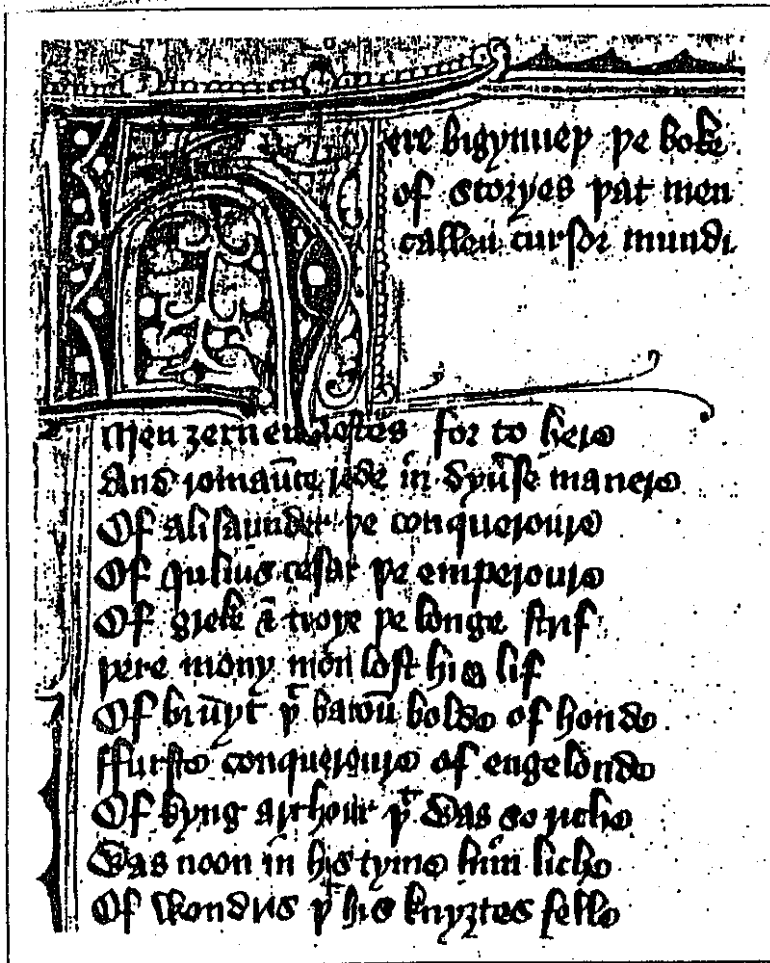 ere bigynneþ þe boke
of storyes þat men
callen cursor mundi
Men ȝernen iestes for to here
And romaūce rede in dyu̓se manere
Of alisaunder þe conqueroure
Of Iulius cesar þe emperoure
Of greke & troye þe longe strif
þere mony mon lost his lif
Of bruyt þͭ baroū bolde of honde
ffurste conqueroure of engelonde
Of kyng arthour þͭ was so riche
Was noon in his tyme him liche
Of wondris þͭ his knyȝtes felle